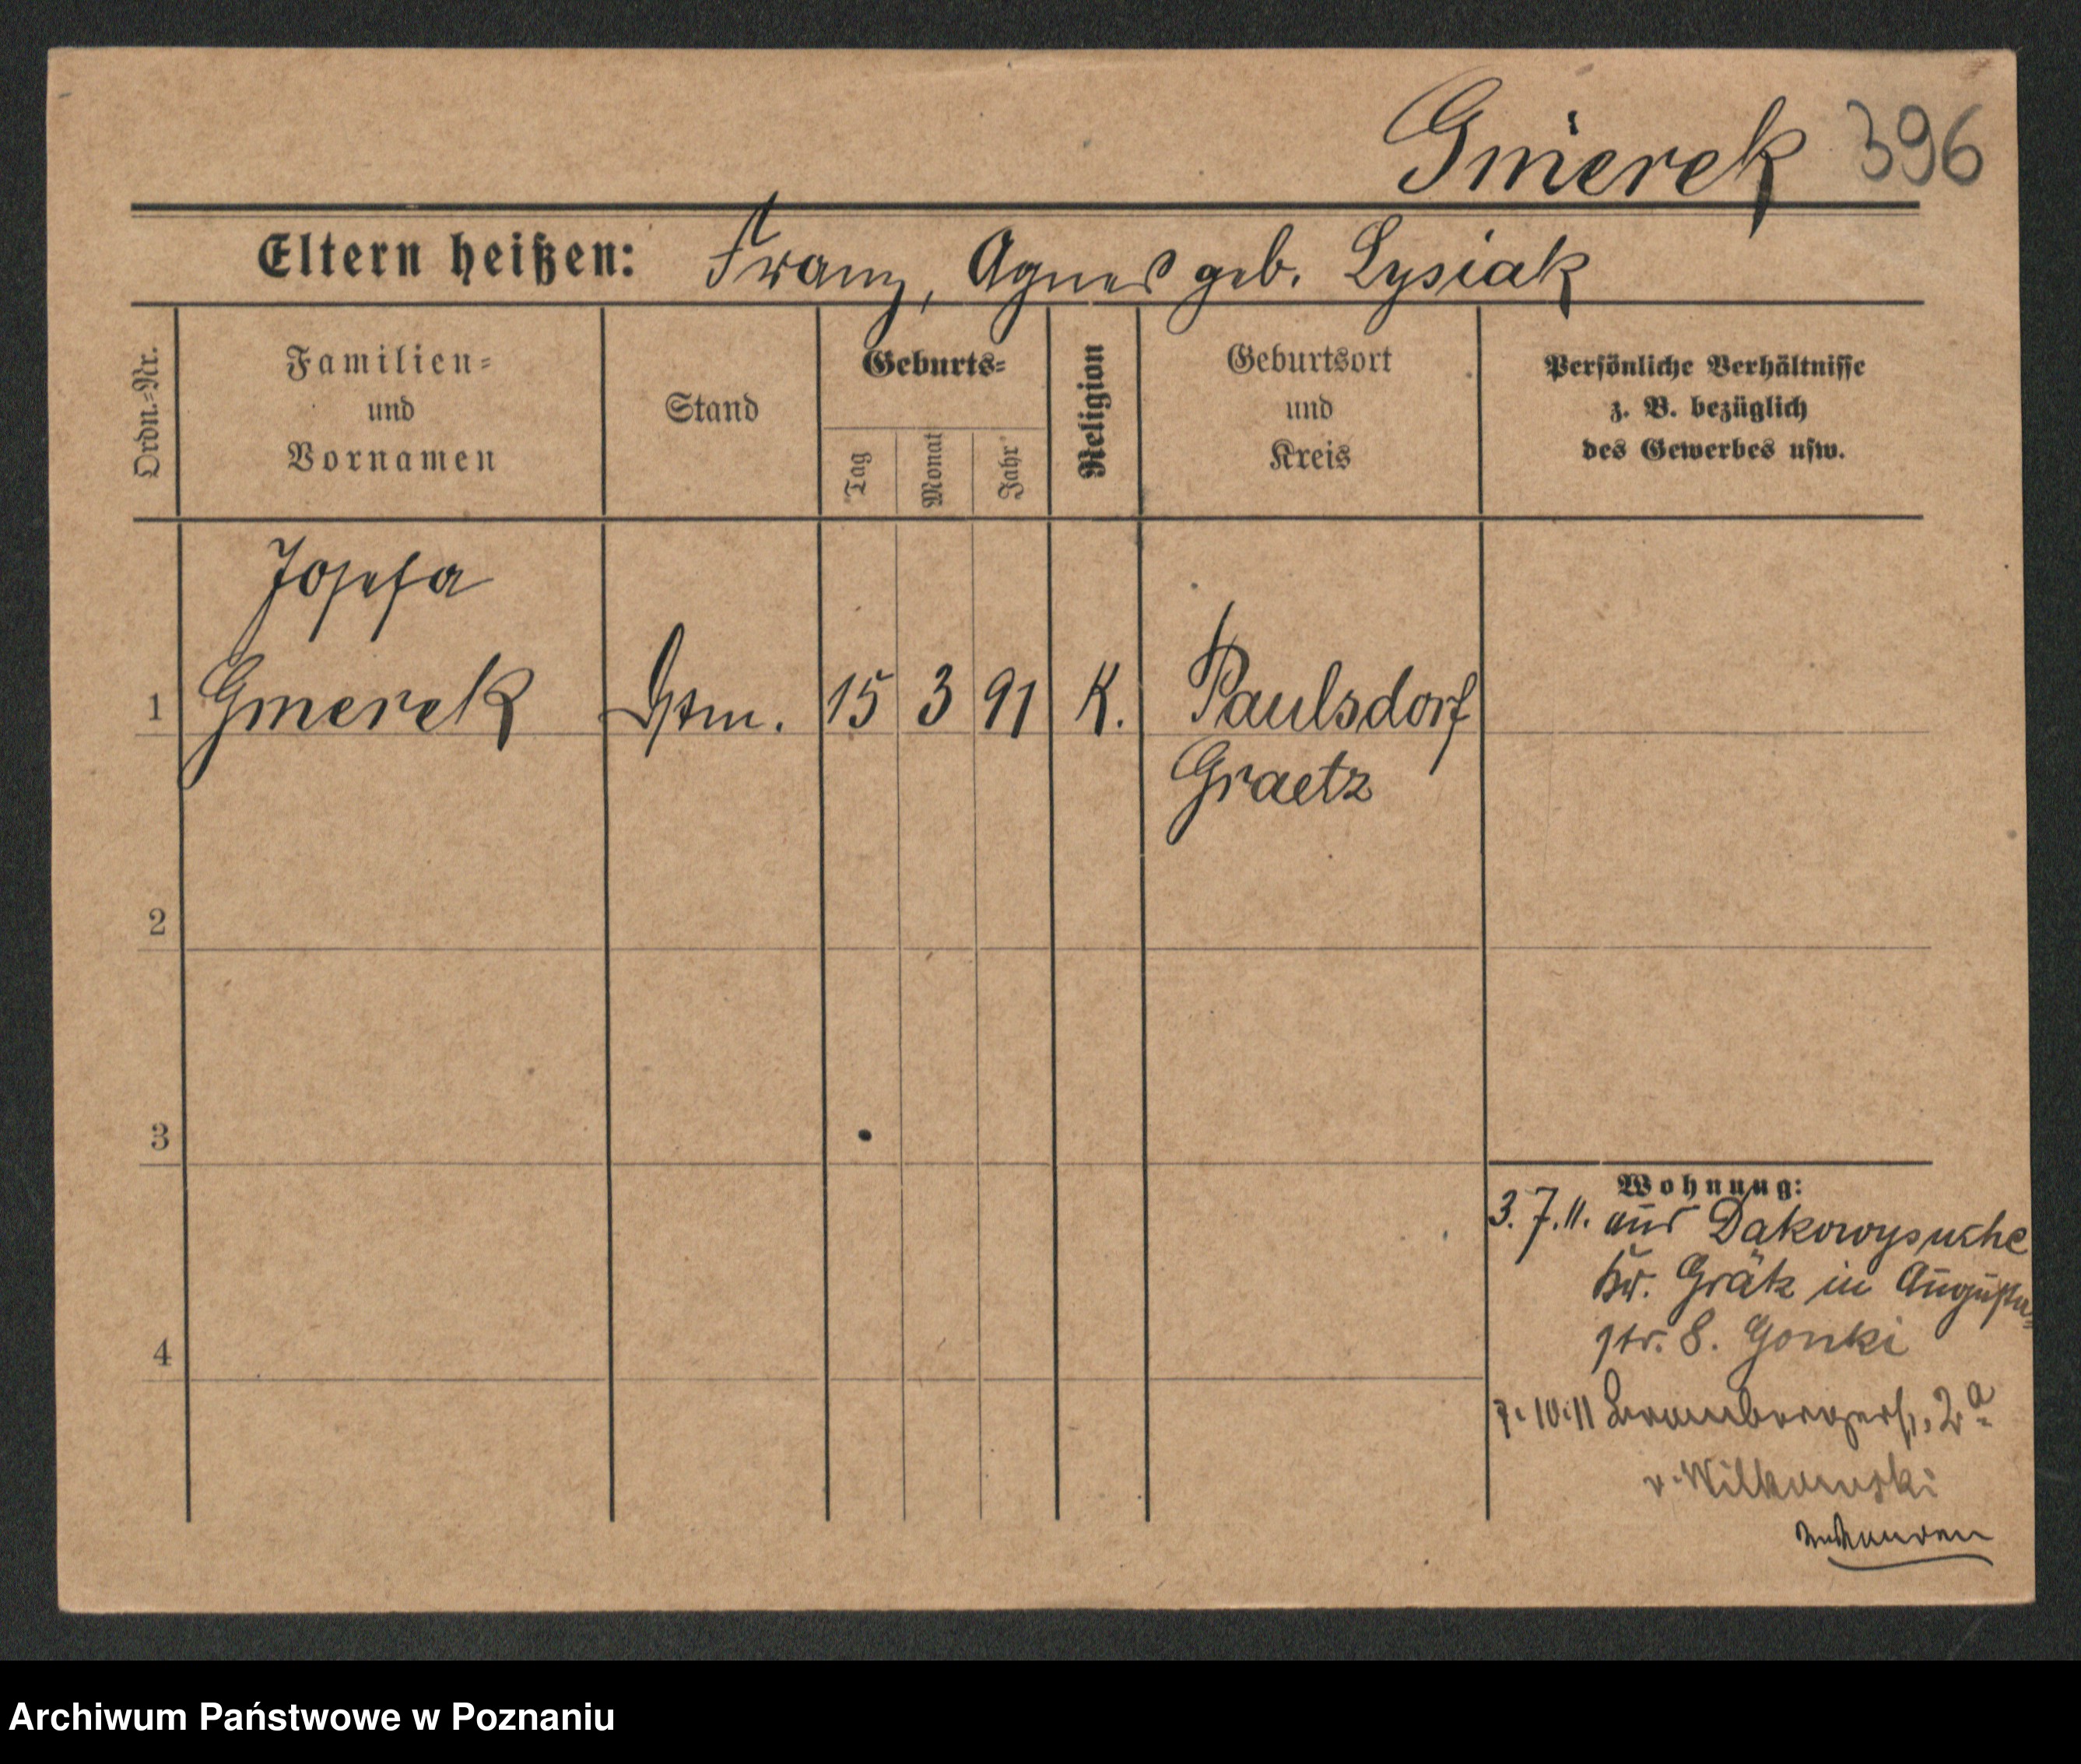 Gmerek 396
Eltern heißen: Franz, Agnes geb. Lysiak
Ordn.-Nr.
Familien-
und
Vornamen
Stand
Geburts-
Tag
Monat
Jahr
Religion
Geburtsort
und
Kreis
Persönliche Verhältnisse
z. B. bezüglich
des Gewerbes usw.
Josefa
1 Gmerek 15 3 91 K. Paulsdorf
Graetz
2
3
4
Wohnung:
3.7.11. aus Dakowysuche
Kr. Grätz in Augusta-
str. 8. Gonki
7.10.11 2a
v. Wilkonski
Archiwum Państwowe w Poznaniu